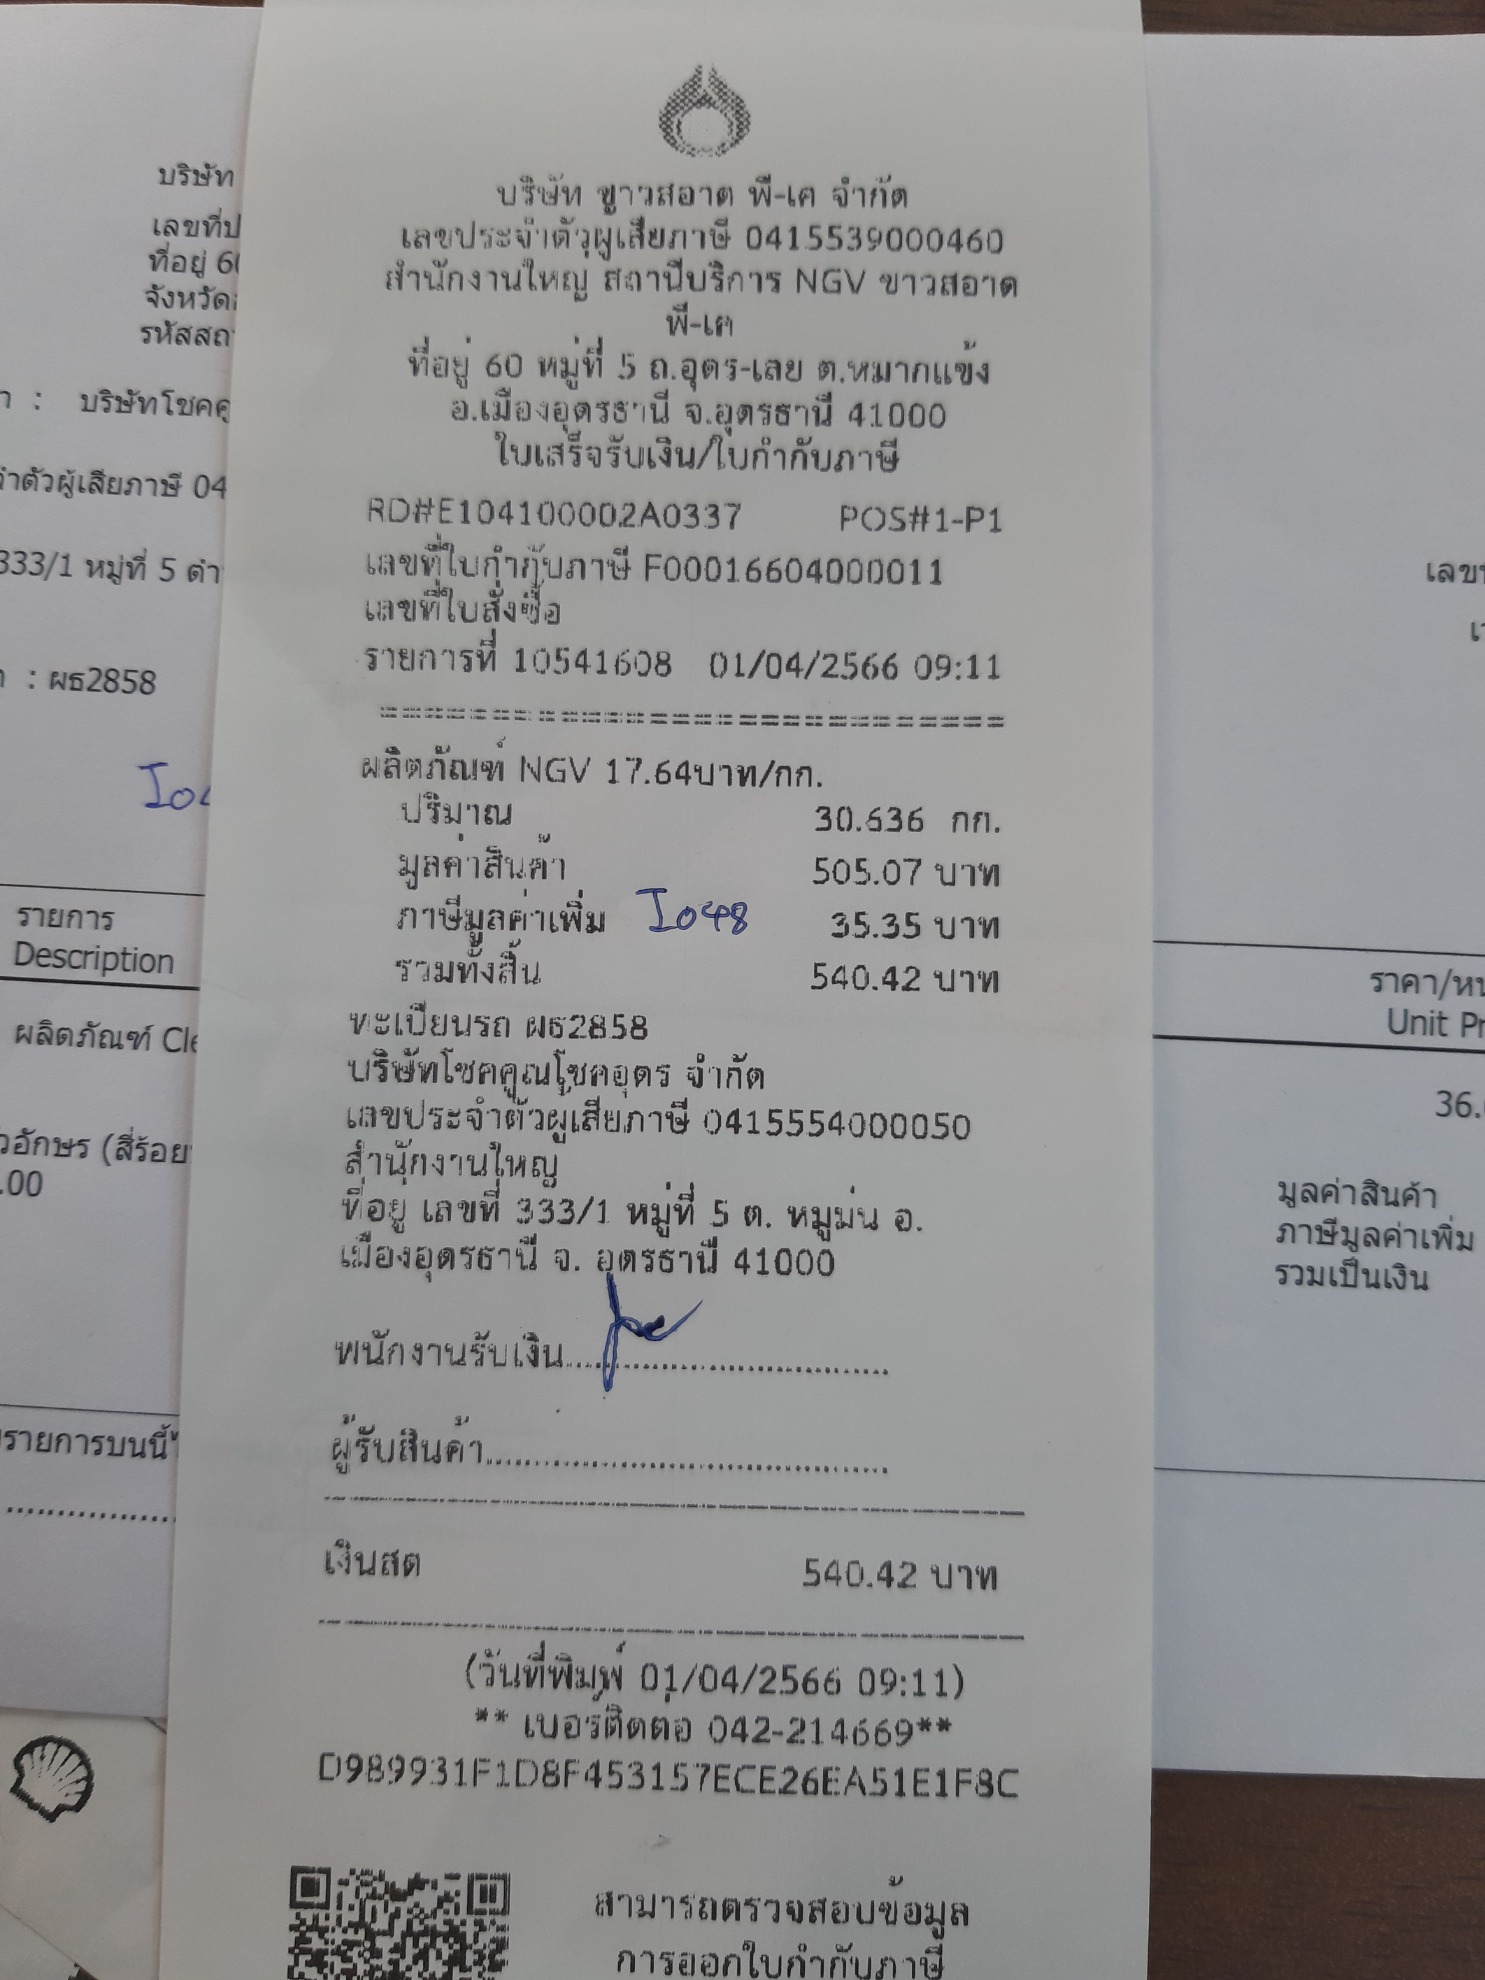 บริษัท ขาวสอาด พี-เค จำกัด
เลขประจำตัวผู้เสียภาษี 0415539000460
สำนักงานใหญ่ สถานีบริการ NGV ขาวสอาด
พี-เค
ที่อยู่ 60 หมู่ที่ 5 ถ.อุดร-เลย ต.หมากแข้ง
อ.เมืองอุดรธานี จ.อุดรธานี 41000
ใบเสร็จรับเงิน/ใบกำกับภาษี
RD#E104100002A0337 POS#1-P1
เลขที่ใบกำกับภาษี F00016604000011
เลขที่ใบสั่งซื้อ
รายการที่ 10541608 01/04/2566 09:11
ผลิตภัณฑ์ NGV 17.64บาท/กก.
ปริมาณ 30.636 กก.
มูลค่าสินค้า 505.07 บาท
ภาษีมูลค่าเพิ่ม I048 35.35 บาท
รวมทั้งสิ้น 540.42 บาท
ทะเบียนรถ ผธ2858
บริษัทโชคคูณโชคอุดร จำกัด
เลขประจำตัวผู้เสียภาษี 0415554000050
สำนักงานใหญ่
ที่อยู่ เลขที่ 333/1 หมู่ที่ 5 ต. หมูม่น อ.
เมืองอุดรธานี จ. อุดรธานี 41000
พนักงานรับเงิน
ผู้รับสินค้า
เงินสด 540.42 บาท
(วันที่พิมพ์ 01/04/2566 09:11)
** เบอร์ติดต่อ 042-214669**
D989931F1D8F453157ECE26EA51E1F8C
สามารถตรวจสอบข้อมูล
การออกใบกำกับภาษี
บริษัท
ที่อยู่
จังหวัด
: บริษัทโชคคู
ตัวผู้เสียภาษี 04
333/1 หมู่ที่ 5
: ผธ2858
รายการ
Description
ผลิตภัณฑ์
(สี่ร้อย
.00
รายการบนนี้
ราคา/
Unit
36.
มูลค่าสินค้า
ภาษีมูลค่าเพิ่ม
รวมเป็นเงิน